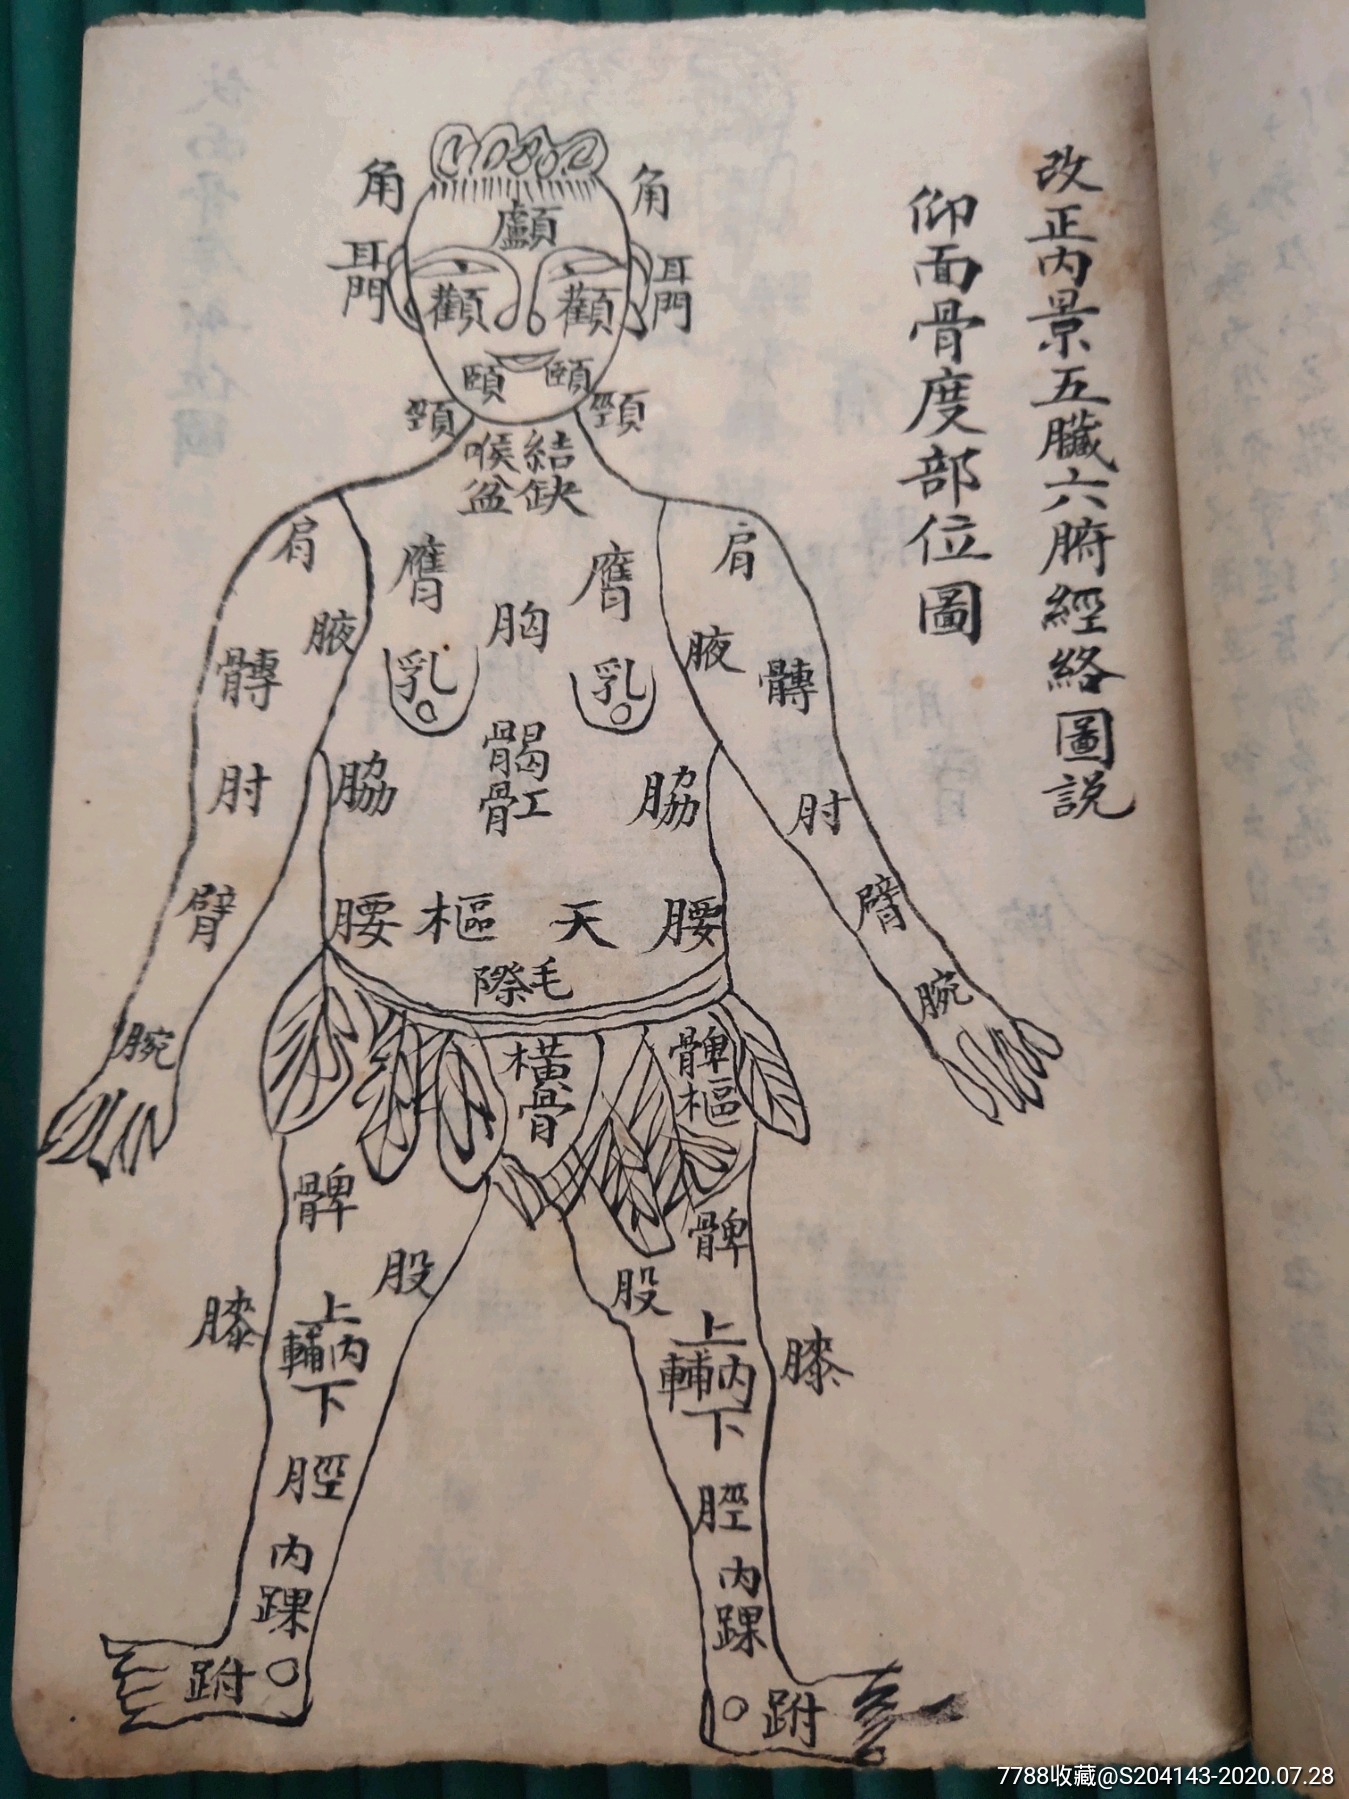 改正內景五臟六腑經絡圖説
仰面骨度部位圖
角
角
顱
耳門
耳門
顴
顴
頤
頤
頸
頸
結喉
缺盆
肩
肩
膺
膺
胸
腋
腋
髆
髆
乳
乳
𩩲骬
肘
肘
脇
脇
臂
臂
腰
天樞
腰
毛際
腕
腕
橫骨
髀樞
髀
髀
股
股
膝
膝
上
內輔
下
上
內輔
下
脛
脛
內踝
內踝
跗
跗
7788收藏@S204143-2020.07.28